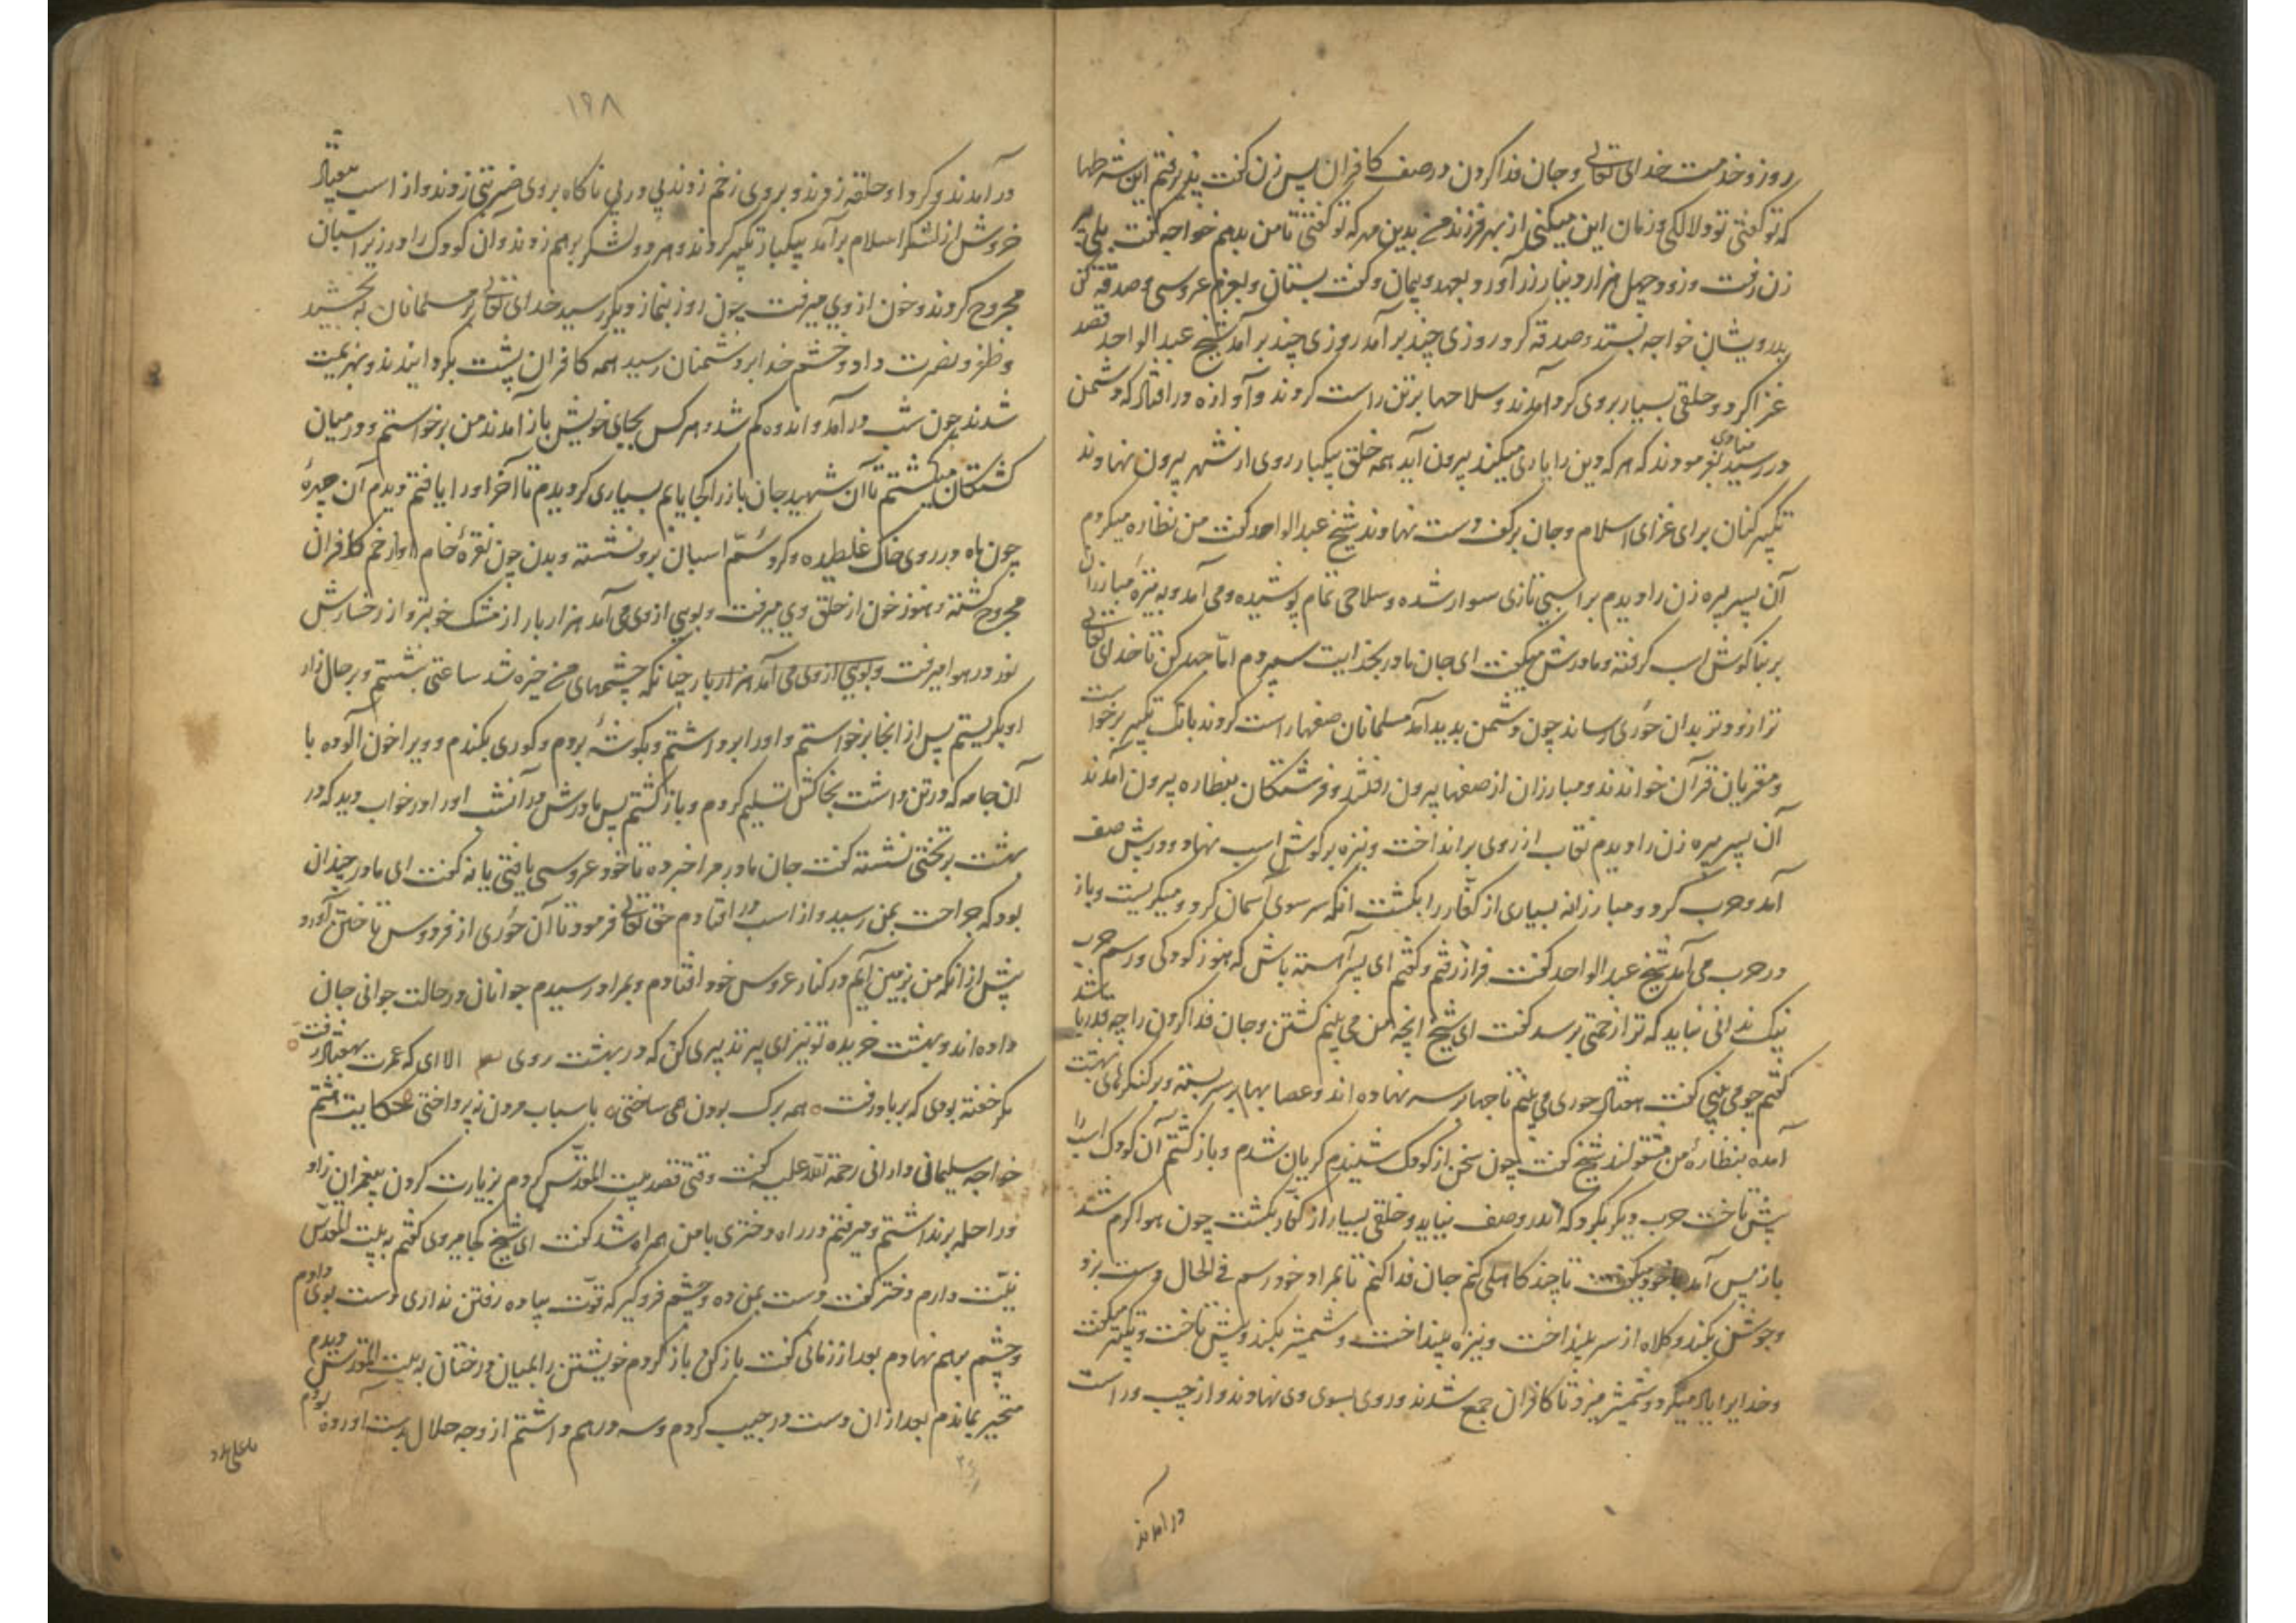 روز و خدمت خدای تعالی و جان فدا کردن در صف کافران پس زن گفت پذیرفتم این شرطها
که تو گفتی تو دلالگی و زمان این میکنی از بهر فرزند من بدین مهر که تو گفتی تا من بدهم خواجه گفت بلی پیر
زن رفت و زود چهل هزار دینار زر آورد و بعهد و پیمان و گفت بستان و بعزم عروسی و صدقه کن
بدرویشان خواجه بستد و صدقه کرد روزی چند برآمد روزی چند برآمد شیخ عبدالواحد قصد
غزا کرد و خلقی بسیار بروی گرد آمدند و سلاحها بر تن راست کردند و آوازه در افتاد که دشمن
در رسید منادی بفرمودند که هر که دین را یاری میکند بیرون آید همه خلق بیکبار روی از شهر بیرون نهادند
تکبیر کنان برای غزای اسلام و جان بر کف دست نهادند شیخ عبدالواحد گفت من نظاره میکردم
آن پسر پیره زن را دیدم بر اسبی تازی سوار شده و سلاحی تمام پوشیده و می آمد و به نیزه مبارزان
بر بناگوش اسب گرفته و مادرش میگفت ای جان مادر بخدایت سپردم اما جهد کن تا خدای تعالی
ترا زودتر بدان حوری رساند چون دشمن بدید آمد مسلمانان صفها راست کردند بانک تکبیر برخواست
و مقریان قرآن خواندند و مبارزان از صفها بیرون رفتند و فرشتگان بنظاره بیرون آمدند
آن پسر پیره زن را دیدم نقاب از روی برانداخت و نیزه بر گوش اسب نهاد و در پیش صف
آمد و حرب کرد و مبارزانه بسیاری از کفار را بکشت انگه سر سوی آسمان کرد و میگریست و باز
در حرب می آمد شیخ عبدالواحد گفت فراز رفتم و گفتم ای پسر آهسته باش که هنوز کودکی و رسم حرب
نیک ندانی نباید که ترا زحمتی برسد گفت ای شیخ انچه من می بینم کشتن و جان فدا کردن را چه قدر باشد
گفتم چو می بینی گفت هفتاد حوری می بینم تاجها بر سر نهاده اند و عصابها بر سر بسته و بر کنگرهای بهشت
آمده بنظاره من مشغولند شیخ گفت چون سخن از کودک شنیدم گریان شدم و باز گشتم آن کودک اسب را
پیش تاخت حرب دیگر بکرد که اندر وصف نیاید و خلقی بسیار از کفار بکشت چون هوا گرم شد
باز پس آمد با خود میگفت تا چند کاهلی کنم جان فدا کنم تا بمراد خود رسم فی الحال دست بزد
و جوشن بکند و کلاه از سر بینداخت و نیزه بینداخت و شمشیر بکند و پیش تاخت و تکبیر میگفت
و خدایرا یاد میکرد و شمشیر میزد تا کافران جمع شدند و روی بسوی وی نهادند و از چپ و راست
در آمدند
۱۹۸
در آمدند و گرد او حلقه زدند و بروی زخم زدند پی در پی ناگاه بروی ضربتی زدند و از اسب بیفتاد
خروش از لشکر اسلام برآمد بیکبار تکبیر کردند و هر دو لشکر بر هم زدند و آن کودک را در زیر اسبان
مجروح کردند و خون از وی میرفت چون روز بنماز دیگر رسید خدای تعالی بر مسلمانان به بخشید
و ظفر و نصرت داد و خشم خدا بر دشمنان رسید همه کافران پشت بگردانیدند و بهزیمت
شدند چون شب در آمد و اندوه کم شد و هر کس بجای خویش باز آمدند من برخواستم و در میان
کشتگان میگشتم تا آن شهید جان باز را کجا یابم بسیاری گردیدم تا آخر او را یافتم دیدم آن چهره
چون ماه در روی خاک غلطیده و گرد سم اسبان برو نشسته و بدن چون نقره خام او از زخم کافران
مجروح گشته و هنوز خون از حلق وی میرفت و بویی از وی می آمد هزار بار از مشک خوبتر و از رخسارش
نور در هوا میرفت و بویی از وی می آمد هزار بار چنانکه چشمهای من خیره شد ساعتی بنشستم و بر حال زار
او بگریستم پس از انجا برخواستم و او را برداشتم و بگوشه بردم و گوری بکندم و ویرا خون آلوده با
آن جامه که در تن داشت بخاکش تسلیم کردم و باز گشتم پس مادرش در آن شب او را در خواب دید که در
بهشت بر تختی نشسته گفت جان مادر مرا خبر ده تا خود عروسی یافتی یا نه گفت ای مادر چندان
بود که جراحت بمن رسید و از اسب در افتادم حق تعالی فرمود تا آن حوری از فردوس تاختن آورد
پیش از انکه من بزمین آیم در کنار عروس خود افتادم و بمراد رسیدم جوانان در حالت جوانی جان
داده اند و بهشت خریده تو نیز ای پیر تدبیری کن که در بهشت روی الا ای که عمرت بهفتاد رفت
مگر خفته بودی که بر باد رفت همه برگ بودن همی ساختی باسباب مردن نپرداختی حکایت هشتم
خواجه سلیمانی دارانی رحمة الله علیه گفت وقتی قصد بیت المقدس کردم بزیارت کردن پیغمبران زاد
و راحله برنداشتم و میرفتم در راه دختری با من همراه شد گفت ای شیخ کجا میروی گفتم به بیت المقدس
نیت دارم دختر گفت دست بمن ده و چشم فرو گیر که قوت پیاده رفتن نداری دست بوی دادم
و چشم بر هم نهادم بعد از زمانی گفت باز کن باز کردم خویشتن را بمیان درختان به بیت المقدس دیدم
متحیر بماندم بعد از ان دست در جیب کردم و سه درهم داشتم از وجه حلال بدست آورده بودم